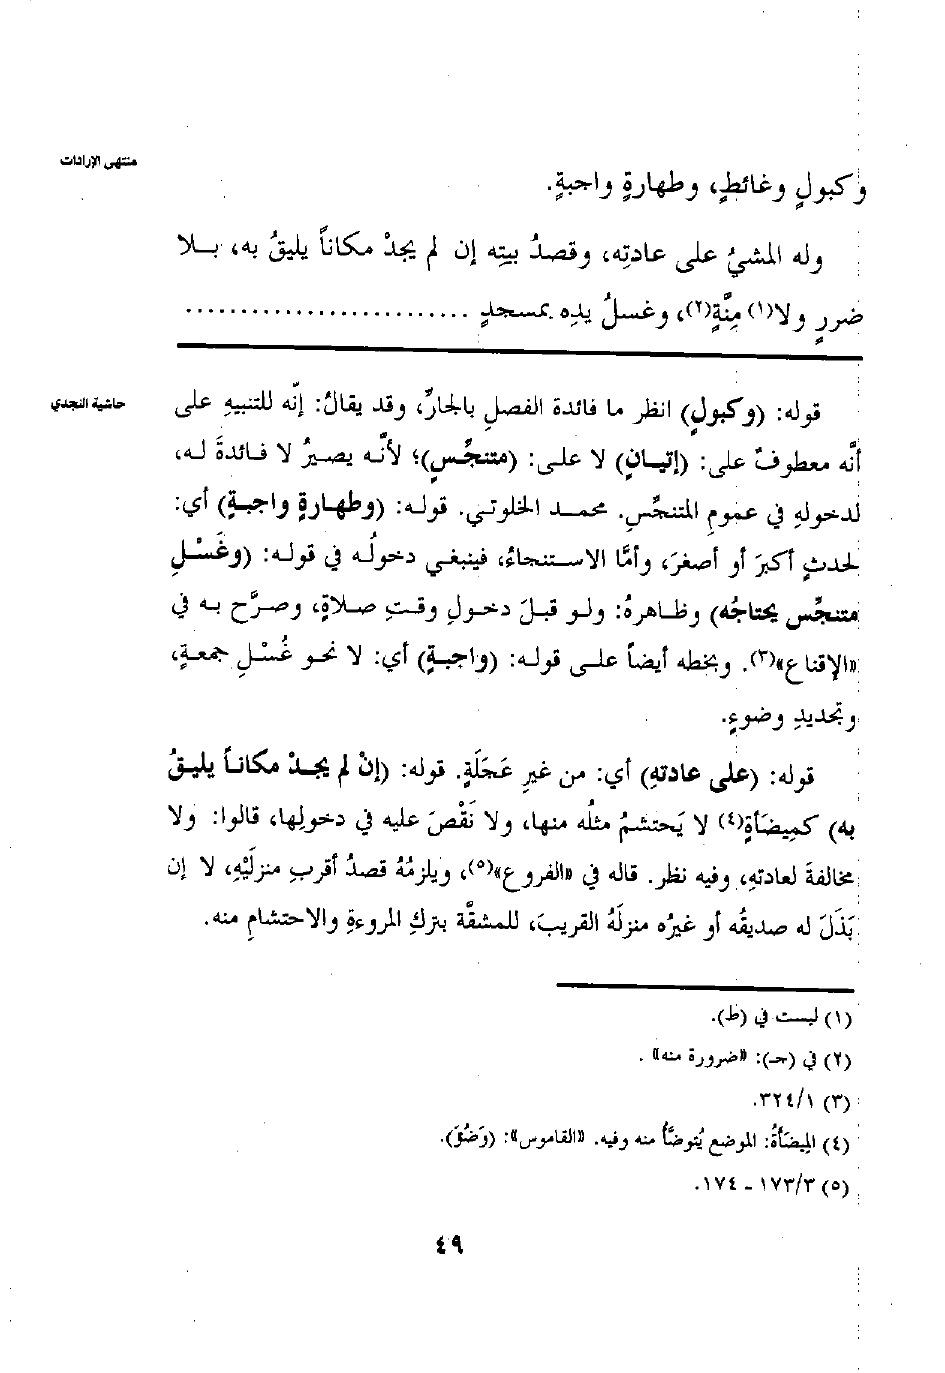 منتهى الإرادات
وكبولٍ وغائطٍ، وطهارةٍ واجبةٍ.
وله المشيُ على عادتِه، وقصدُ بيتِه إن لم يجدْ مكاناً يليقُ به، بـلا
ضررٍ ولا(١) مِنَّةٍ(٢)، وغسلُ يدِه بمسجدٍ .........................
حاشية النجدي
قوله: (وكبولٍ) انظر ما فائدة الفصلِ بالجارِّ، وقد يقالُ: إنَّه للتنبيهِ على
أنَّه معطوفٌ على: (إتيـانِ) لا على: (متنجِّسٍ)؛ لأنَّـه يصـيرُ لا فـائدةَ لـه،
لدخولهِ في عمومِ المتنجِّسِ. محمـد الخلوتـي. قولـه: (وطهـارةٍ واجبـةٍ) أي:
لحدثٍ أكبرَ أو أصغرَ، وأمَّا الاسـتنجاءُ، فينبغـي دخولُـه في قولـه: (وغَسْـلِ
متنجِّسٍ يحتاجُه) وظـاهرهُ: ولـو قبـلَ دخـولِ وقـتِ صـلاةٍ، وصـرَّح بـه في
«الإقناع»(٣). وبخطه أيضاً علـى قولـه: (واجبـةٍ) أي: لا نحـو غُسْـلِ جمعـةٍ،
وتجديدِ وضوءٍ.
قوله: (على عادتهِ) أي: من غيرِ عَجَلَةٍ. قوله: (إنْ لم يجـدْ مكانـاً يليـقُ
به) كمِيضَأةٍ(٤) لا يَحتشمُ مثلُه منها، ولا نَقْصَ عليه في دخولِها، قالوا: ولا
مخالفةَ لعادتهِ، وفيه نظر. قاله في «الفروع»(٥)، ويلزمُهُ قصدُ أقربِ منزلَيْهِ، لا إن
بَذَلَ له صديقُه أو غيرُه منزلَهُ القريبَ، للمشقَّة بتركِ المروءةِ والاحتشامِ منه.
(١) ليست في (ط).
(٢) في (جـ): «ضرورة منه» .
(٣) ٣٢٤/١.
(٤) المِيضَأةُ: الموضع يُتوضَّأُ منه وفيه. «القاموس»: (وَضُؤَ).
(٥) ١٧٣/٣ ـ ١٧٤.
٤٩